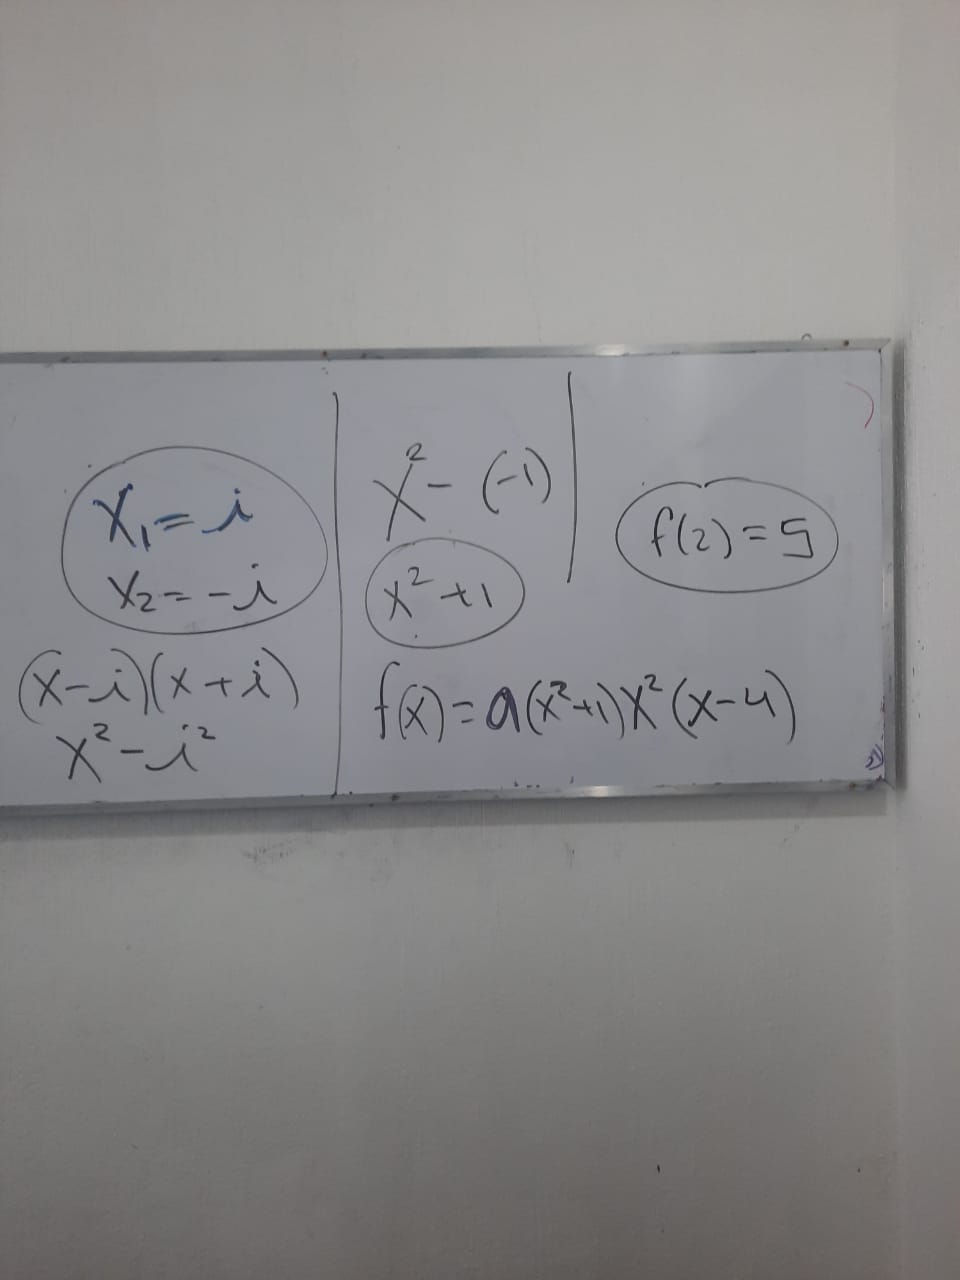 x₁ = i
x₂ = -i
(x-i)(x+i)
x² - i²
x² - (-1)
x² + 1
f(x) = a(x²+1)x²(x-4)
f(2) = 5